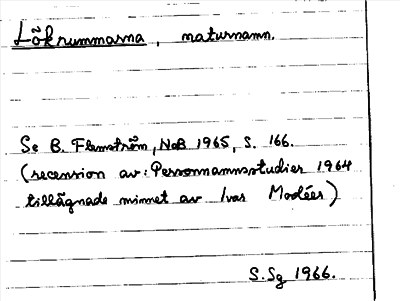 Lökrummarna, naturnamn.
Se B. Flemström, NoB 1965, s. 166.
(recension av: Personnamnsstudier 1964
tillägnade minnet av Ivar Modéer)
S.Sg 1966.